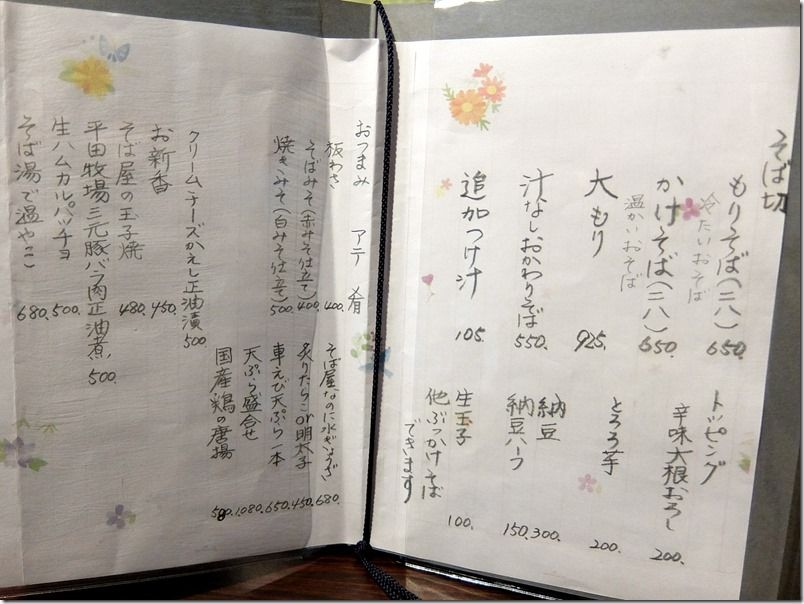 そば切
もりそば(二八) 650.
冷たいおそば
かけそば(二八) 650.
温かいおそば
大もり 925.
汁なしおかわりそば 550.
追加つけ汁 105.
トッピング
辛味大根おろし 200.
とろろ芋 200.
納豆 300.
納豆ハーフ 150.
生玉子 100.
他ぶっかけそば
できます
おつまみ アテ 肴
板わさ 400.
そばみそ(赤みそ仕立て) 400.
焼きみそ(白みそ仕立て) 500.
クリームチーズかえし正油漬 500
お新香 450.
そば屋の玉子焼 480.
平田牧場三元豚バラ肉正油煮 500.
生ハムカルパッチョ 500.
そば湯で温やっこ 680.
そば屋なのに水ぎょうざ 680.
炙りたらこor明太子 450.
車えび天ぷら一本 650.
天ぷら盛合せ 1.080.
国産鶏の唐揚 580.